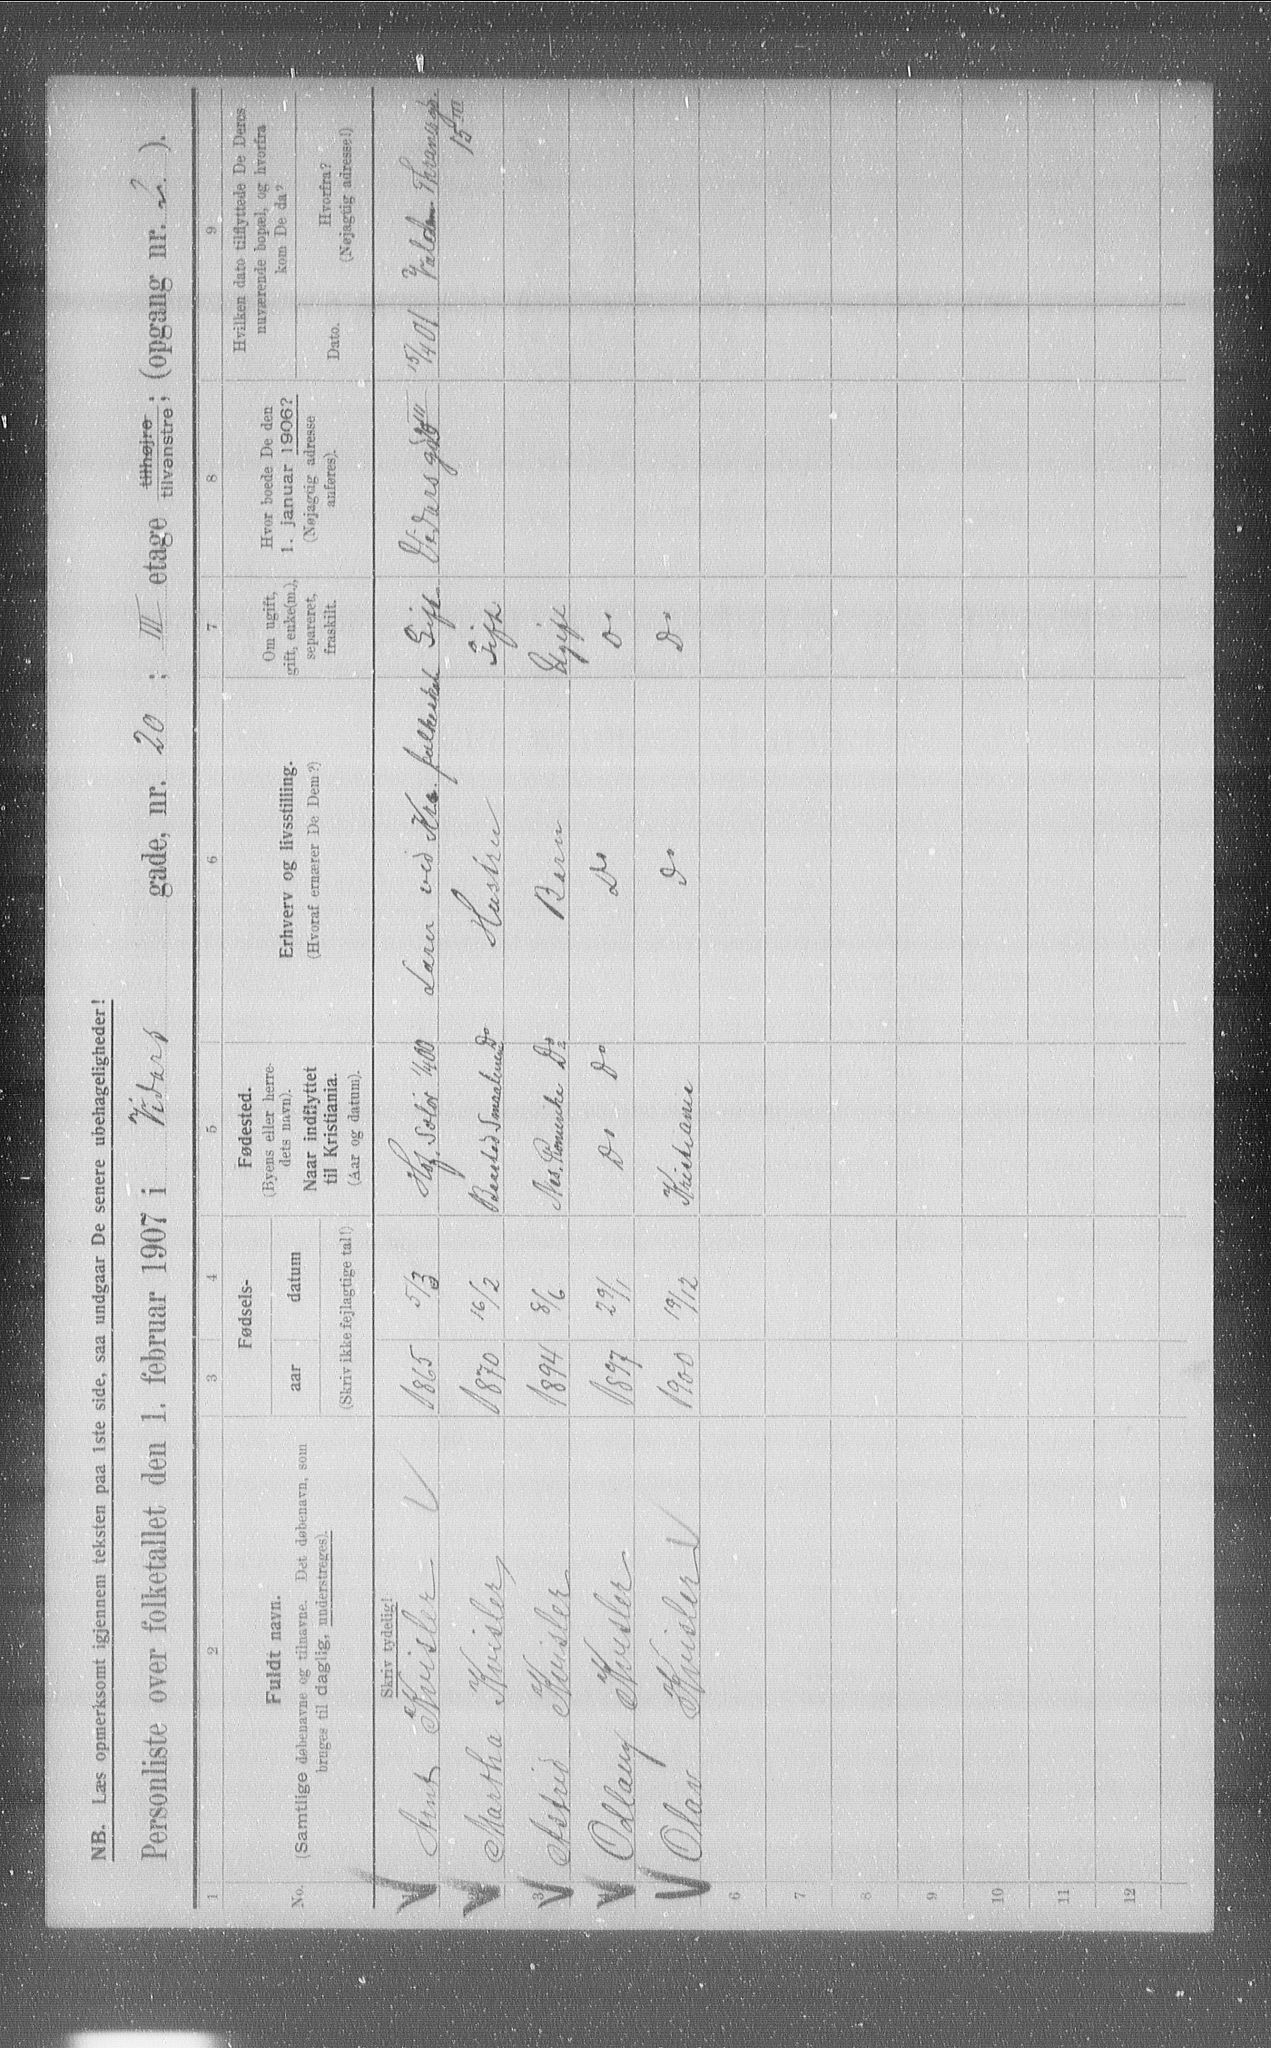 NB. Læs opmerksomt igjennem teksten paa 1ste side, saa undgaar De senere ubehageligheder!
Personliste over folketallet den 1. februar 1907 i Vidars gade, nr. 20 ; III etage tilhøjre tilvenstre ; (opgang nr. 2. ).
1 2 3 4 5 6 7 8 9
No.
Fuldt navn.
(Samtlige døbenavne og tilnavne. Det døbenavn, som
bruges til daglig, understreges).
Fødsels-
aar datum
(Skriv ikke fejlagtige tal!)
Fødested.
(Byens eller herre-
dets navn).
Naar indflyttet
til Kristiania.
(Aar og datum).
Erhverv og livsstilling.
(Hvoraf ernærer De Dem?)
Om ugift,
gift, enke(m.),
separeret,
fraskilt.
Hvor boede De den
1. januar 1906?
(Nøjagtig adresse
anføres).
Hvilken dato tilflyttede De Deres
nuværende bopæl, og hvorfra
kom De da?
Dato.
Hvorfra?
(Nøjagtig adresse!)
Skriv tydelig!
1 Arnt Kvisler 1865 5/3 Hof. Solør 1/4 00 Lærer ved Kra. folkeskol Gift Vidarsgd 20 III 15/4 01 Thranesgd.
15 III
2 Martha Kvisler 1870 16/2 Smaalenene Do Hustru Gift
3 Astrid Kvisler 1894 8/6 Nes. Romerike Do Barn Ugift
4 Odlaug Kvisler 1897 29/1 Do Do Do Do
5 Olav Kvisler 1900 19/12 Kristiania Do Do
6
7
8
9
10
11
12